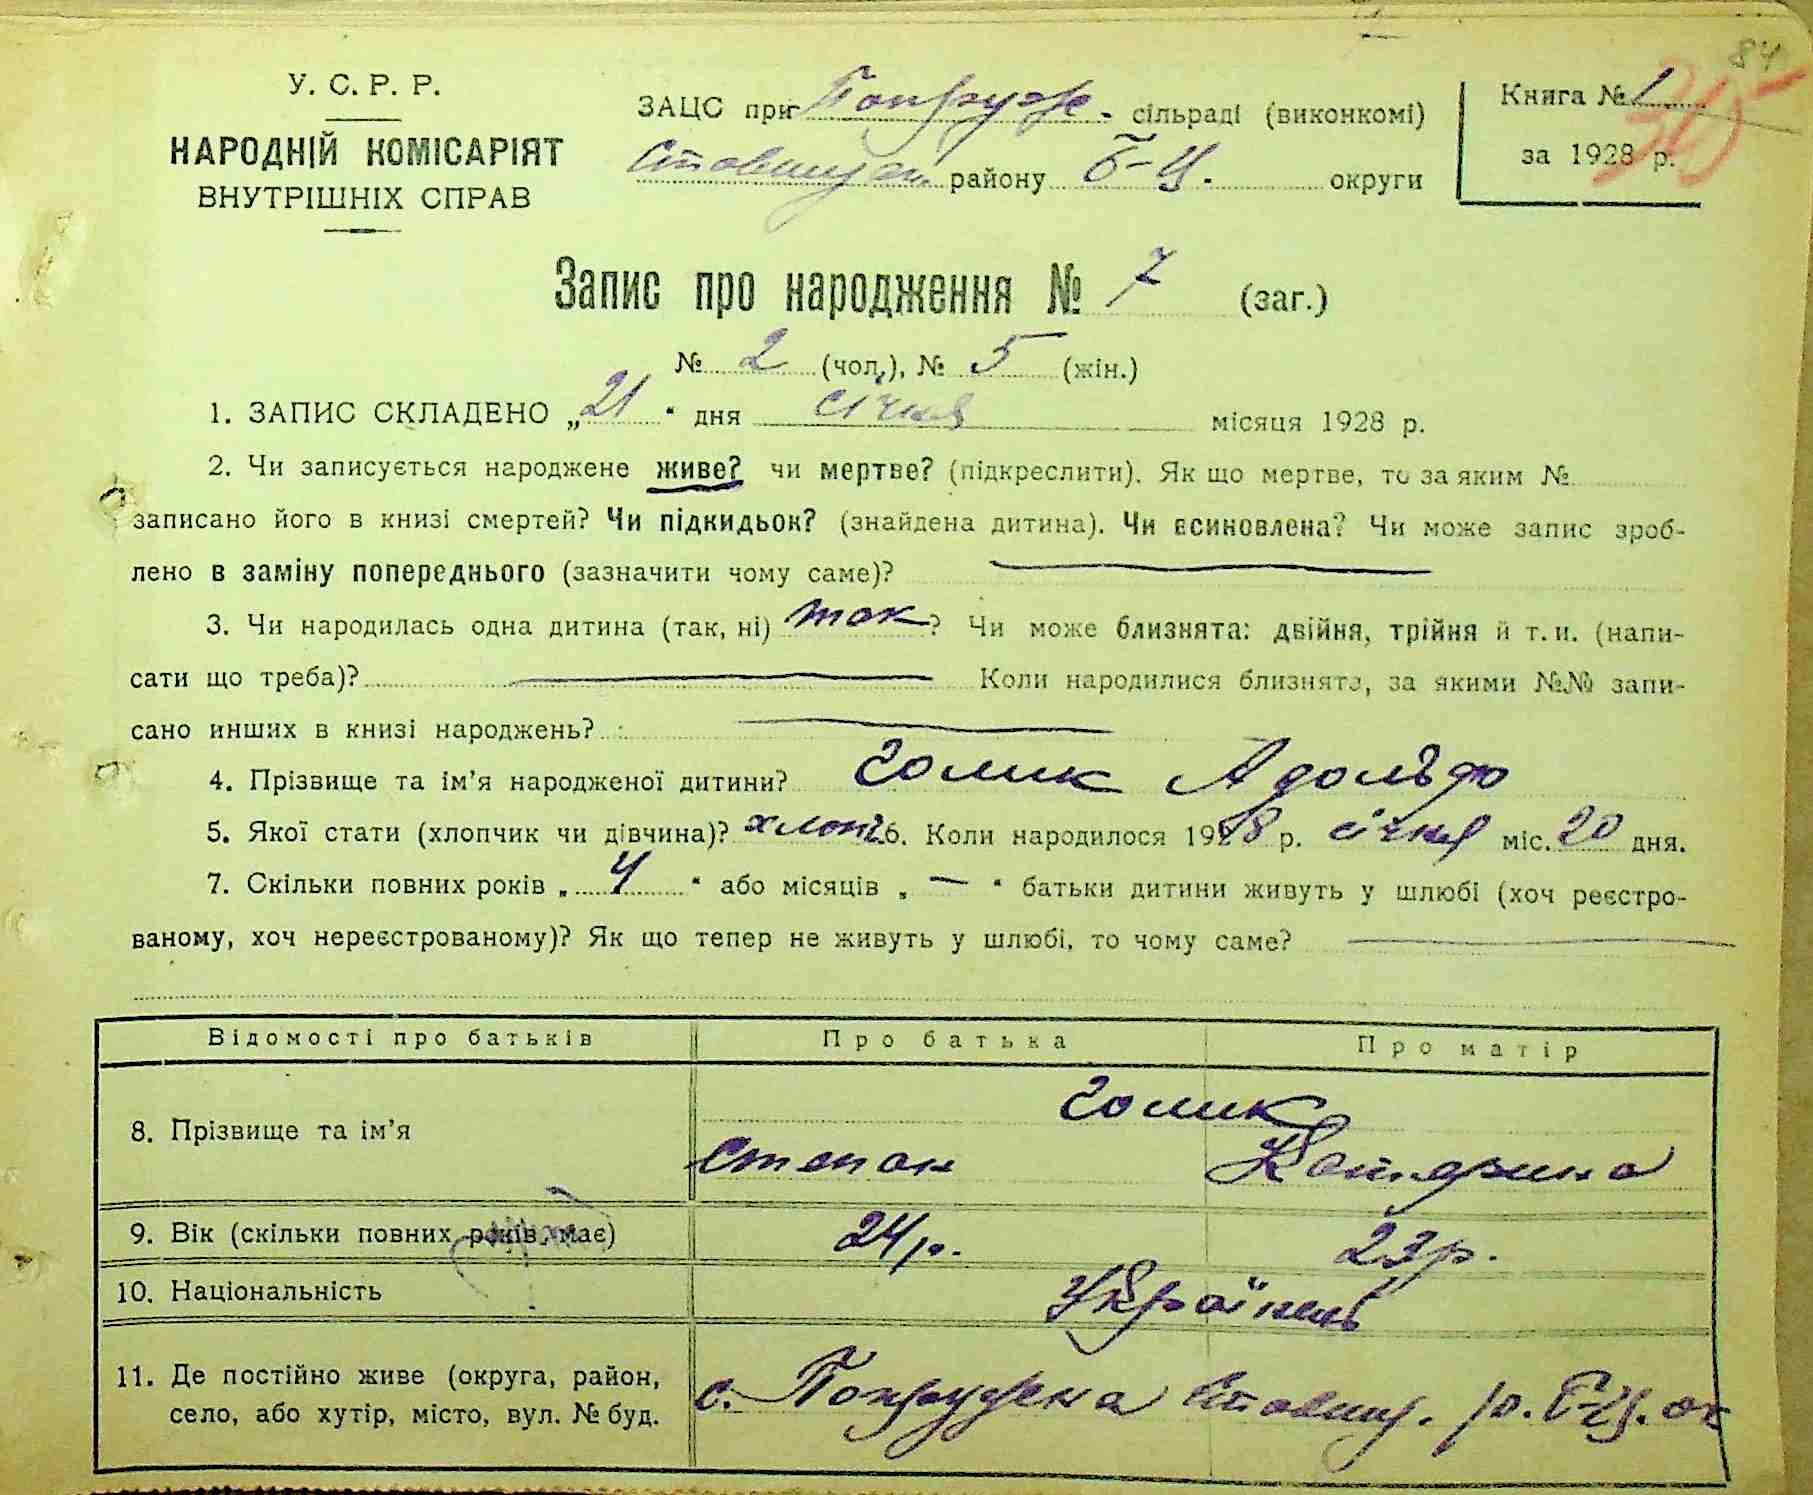 84
У. С. Р. Р.
НАРОДНІЙ КОМІСАРІЯТ
ВНУТРІШНІХ СПРАВ
ЗАЦС при Попруж. сільраді (виконкомі)
району Б-Ц. округи
Книга № 1
за 1928 р.
Запис про народження № 7 (заг.)
№ 2 (чол.), № 5 (жін.)
1. ЗАПИС СКЛАДЕНО „21“ дня січня місяця 1928 р.
2. Чи записується народжене живе? чи мертве? (підкреслити). Як що мертве, то за яким №
записано його в книзі смертей? Чи підкидьок? (знайдена дитина). Чи всиновлена? Чи може запис зроб-
лено в заміну попереднього (зазначити чому саме)? —
3. Чи народилась одна дитина (так, ні) так? Чи може близнята: двійня, трійня й т. и. (напи-
сати що треба)? — Коли народилися близнята, за якими №№ запи-
сано инших в книзі народжень? —
4. Прізвище та ім’я народженої дитини? Голик Адольф
5. Якої стати (хлопчик чи дівчина)? хлоп. 6. Коли народилося 1928 р. січня міс. 20 дня.
7. Скільки повних років „4“ або місяців „—“ батьки дитини живуть у шлюбі (хоч реєстро-
ваному, хоч нереєстрованому)? Як що тепер не живуть у шлюбі, то чому саме? —
Відомості про батьків Про батька Про матір
8. Прізвище та ім’я Голик
Степан Катерина
9. Вік (скільки повних років має) 24 р. 23 р.
10. Національність Українець
11. Де постійно живе (округа, район,
село, або хутір, місто, вул. № буд.
с. Попружена Ставищ. р. Б-Ц. ок